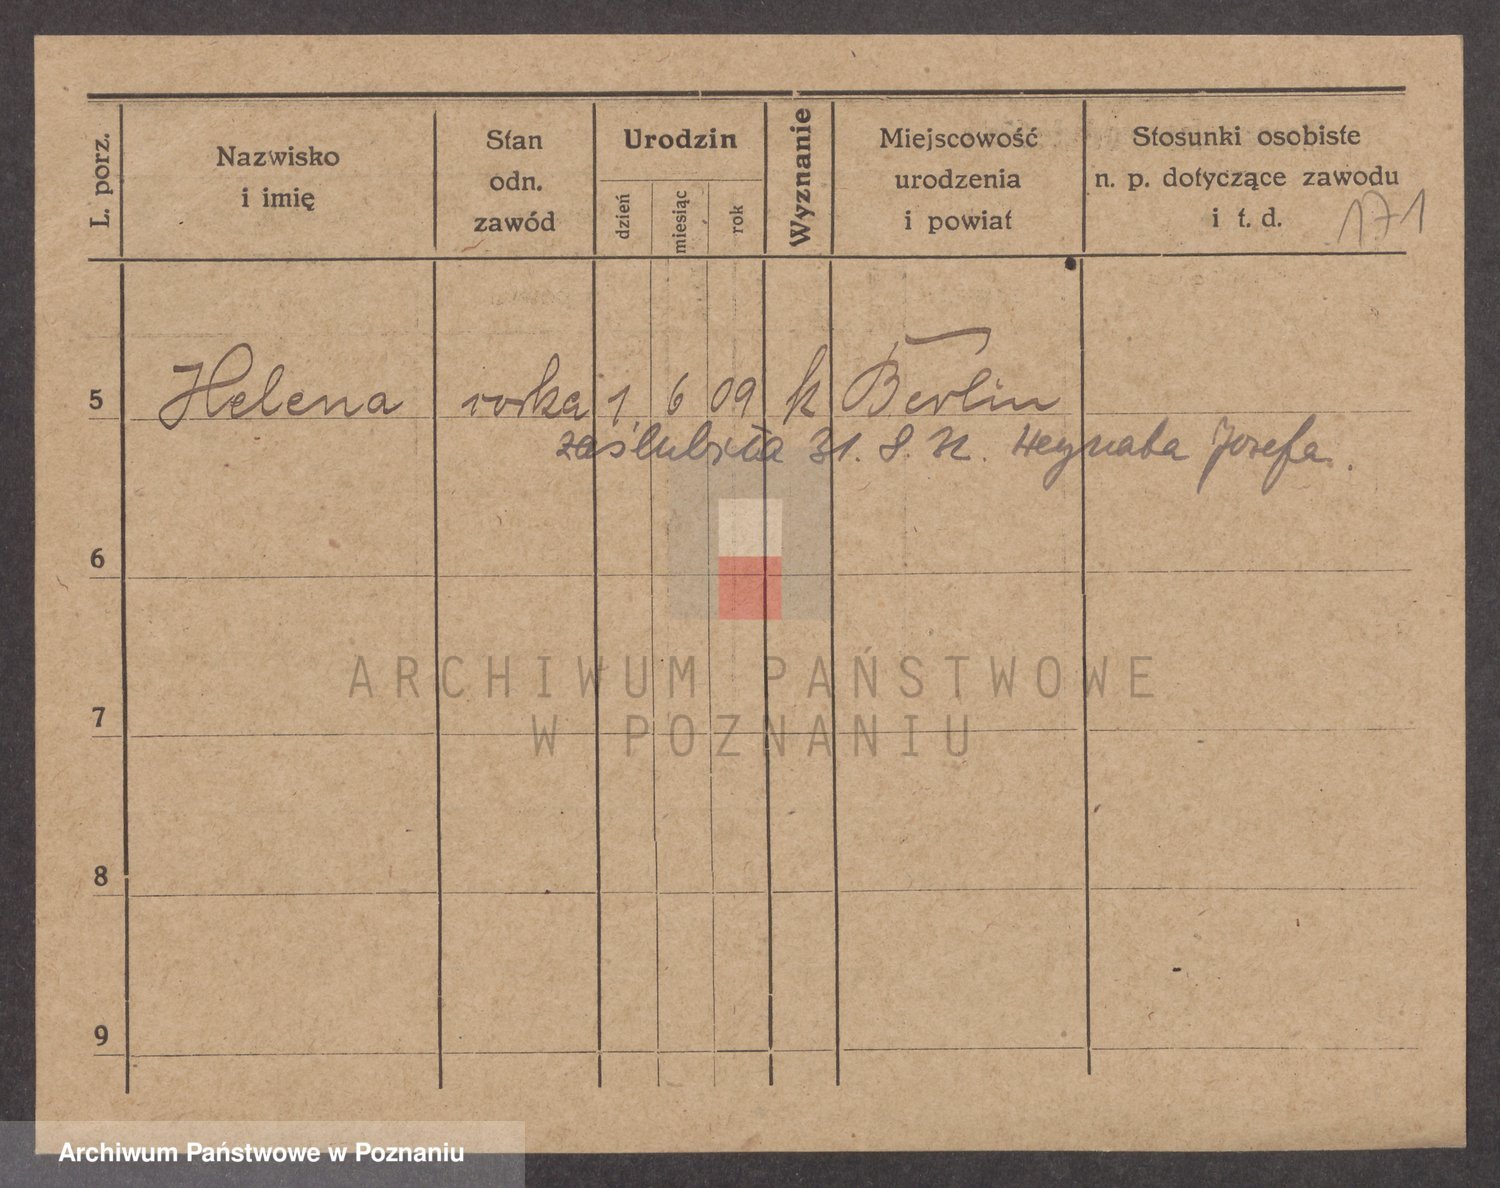 L. porz.
Nazwisko
i imię
Stan
odn.
zawód
Urodzin
dzień
miesiąc
rok
Wyznanie
Miejscowość
urodzenia
i powiat
Stosunki osobiste
n. p. dotyczące zawodu
i t. d.
171
5 Helena 1 6 09 k Berlin
zaślubiła 31. 8. Józefa.
6
7
8
9
ARCHIWUM PAŃSTWOWE
W POZNANIU
Archiwum Państwowe w Poznaniu